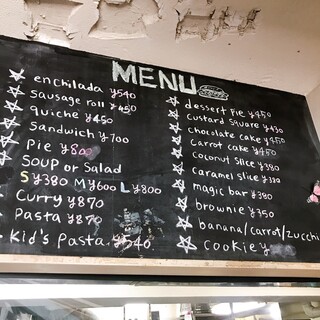 MENU
enchilada ¥540
sausage roll ¥450
quiche ¥450
Sandwich ¥700
Pie ¥800
SOUP or Salad
S ¥380 M ¥600 L ¥800
Curry ¥870
Pasta ¥870
Kid's Pasta ¥540
dessert Pie ¥450
Custard Square ¥430
chocolate cake ¥450
Carrot cake ¥450
Coconut Slice ¥380
Caramel slice ¥380
magic bar ¥380
brownie ¥350
banana/carrot/zucchi
cookie ¥